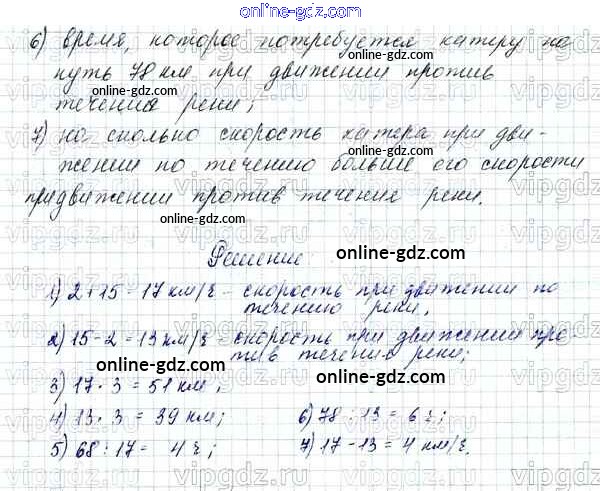 online-gdz.com
6) время, которое потребуется катеру на
online-gdz.com
путь 78 км при движении против
течения реки;
online-gdz.com
7) на сколько скорость катера при дви-
жении по течению больше его скорости
online-gdz.com
при движении против течения реки.
online-gdz.com
Решение:
online-gdz.com
1) 2+15=17 км/ч - скорость при движении по
течению реки,
online-gdz.com
2) 15-2=13 км/ч - скорость при движении про-
тив течения реки;
online-gdz.com
3) 17·3=51 км;
online-gdz.com
4) 13·3=39 км; 6) 78:13=6 ч;
online-gdz.com
5) 68:17= 4 ч; 7) 17-13=4 км/ч.
online-gdz.com
vipgdz.ru